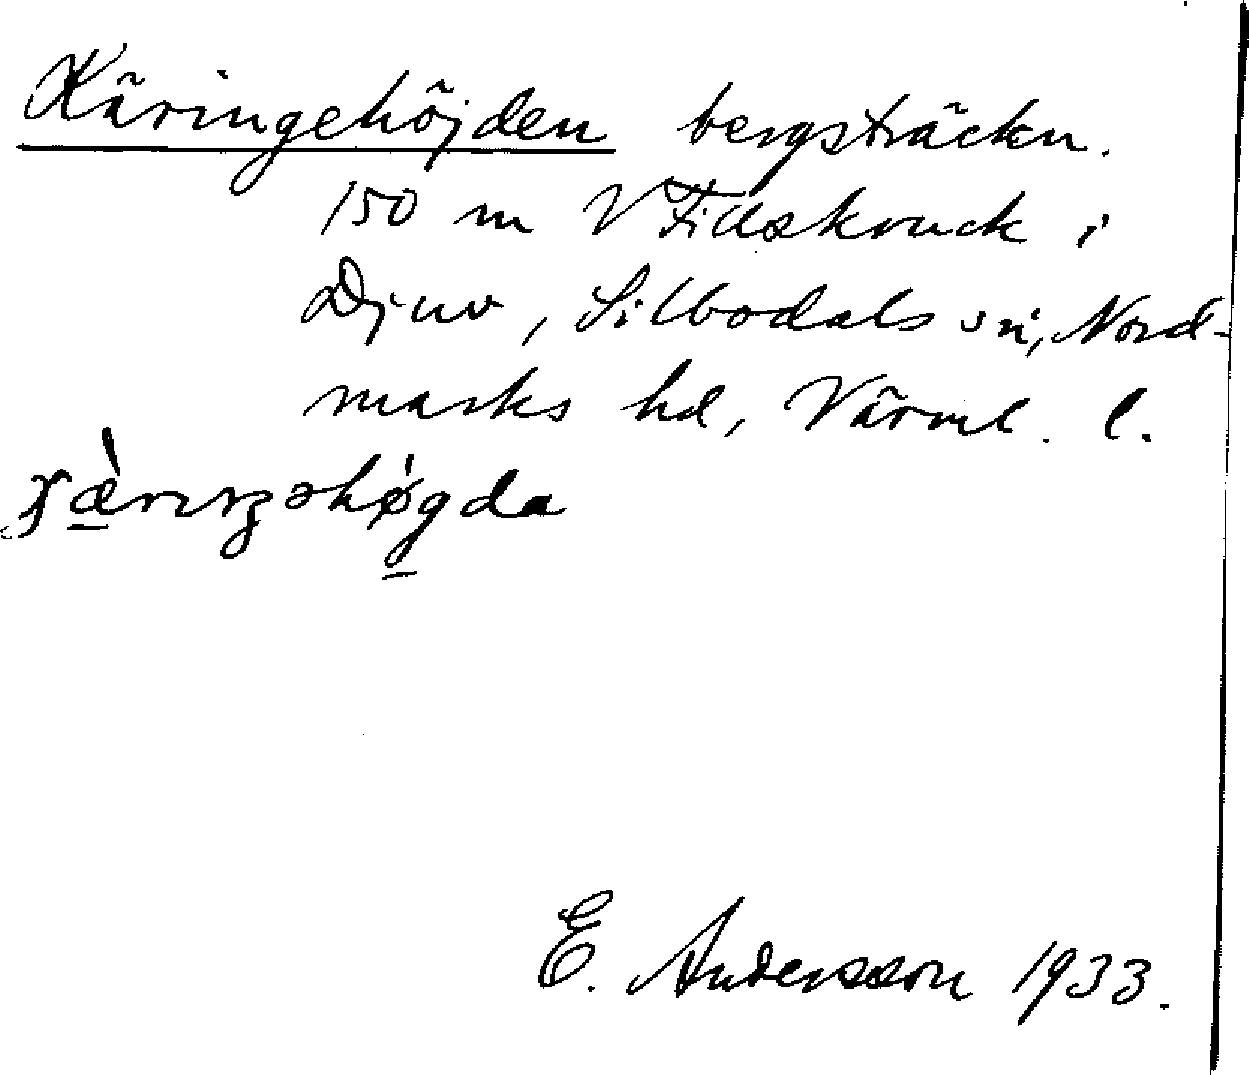 Käringehöjden bergsträckn.
150 m V Fidskruck i
Djuv, Silbodals sn, Nord-
marks hd, Värml. l.
E. Andersson 1933.